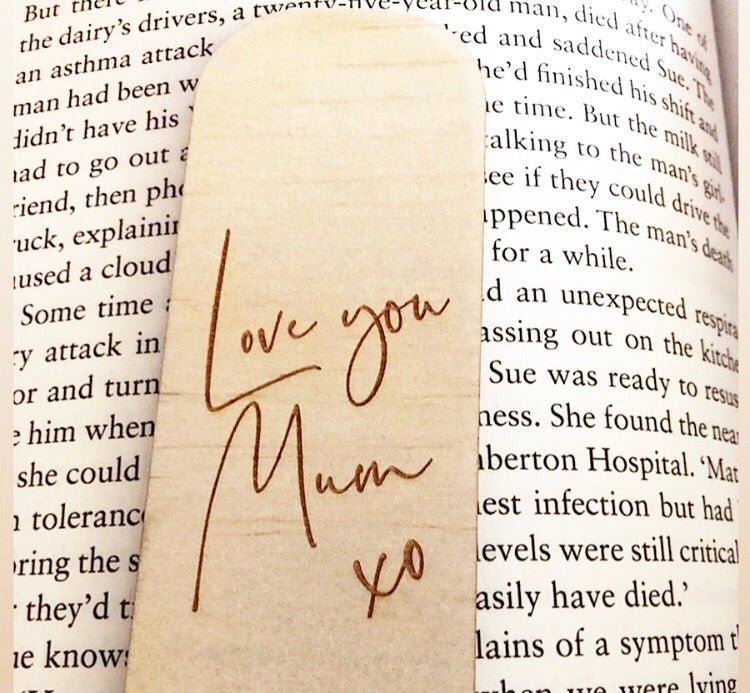 But
the dairy's drivers, a twenty-five-year-old man, died after having
an asthma attack ked and saddened Sue. The
man had been w he'd finished his shift and
didn't have his e time. But the milk still
had to go out a alking to the man's girl-
riend, then pho see if they could drive the
ruck, explainin appened. The man's death
aused a cloud for a while.
Some time d an unexpected respira
ry attack in assing out on the kitche
or and turn Sue was ready to resus
e him when ness. She found the near
she could mberton Hospital. 'Mat
tolerance est infection but had
oring the s levels were still critical
they'd t asily have died.'
e knows lains of a symptom t
when we were lying
Love you
Mum
xo